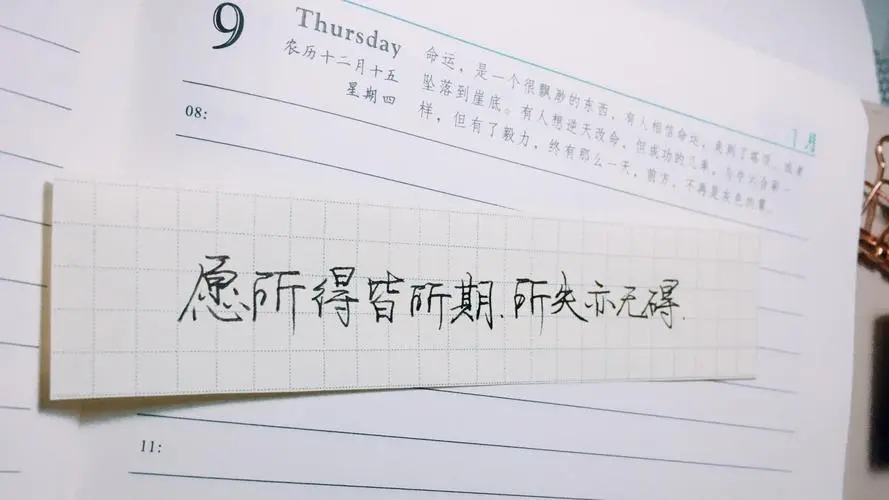 9
Thursday
农历十二月十五
星期四
1月
命运，是一个很飘渺的东西，有人相信命运，走到了塔顶，或者
坠落到崖底。有人想逆天改命，但成功的几率，与中六合彩一
样，但有了毅力，终有那么一天，前方，不再是灰色的雾。
08:
愿所得皆所期.所失亦无碍.
11: